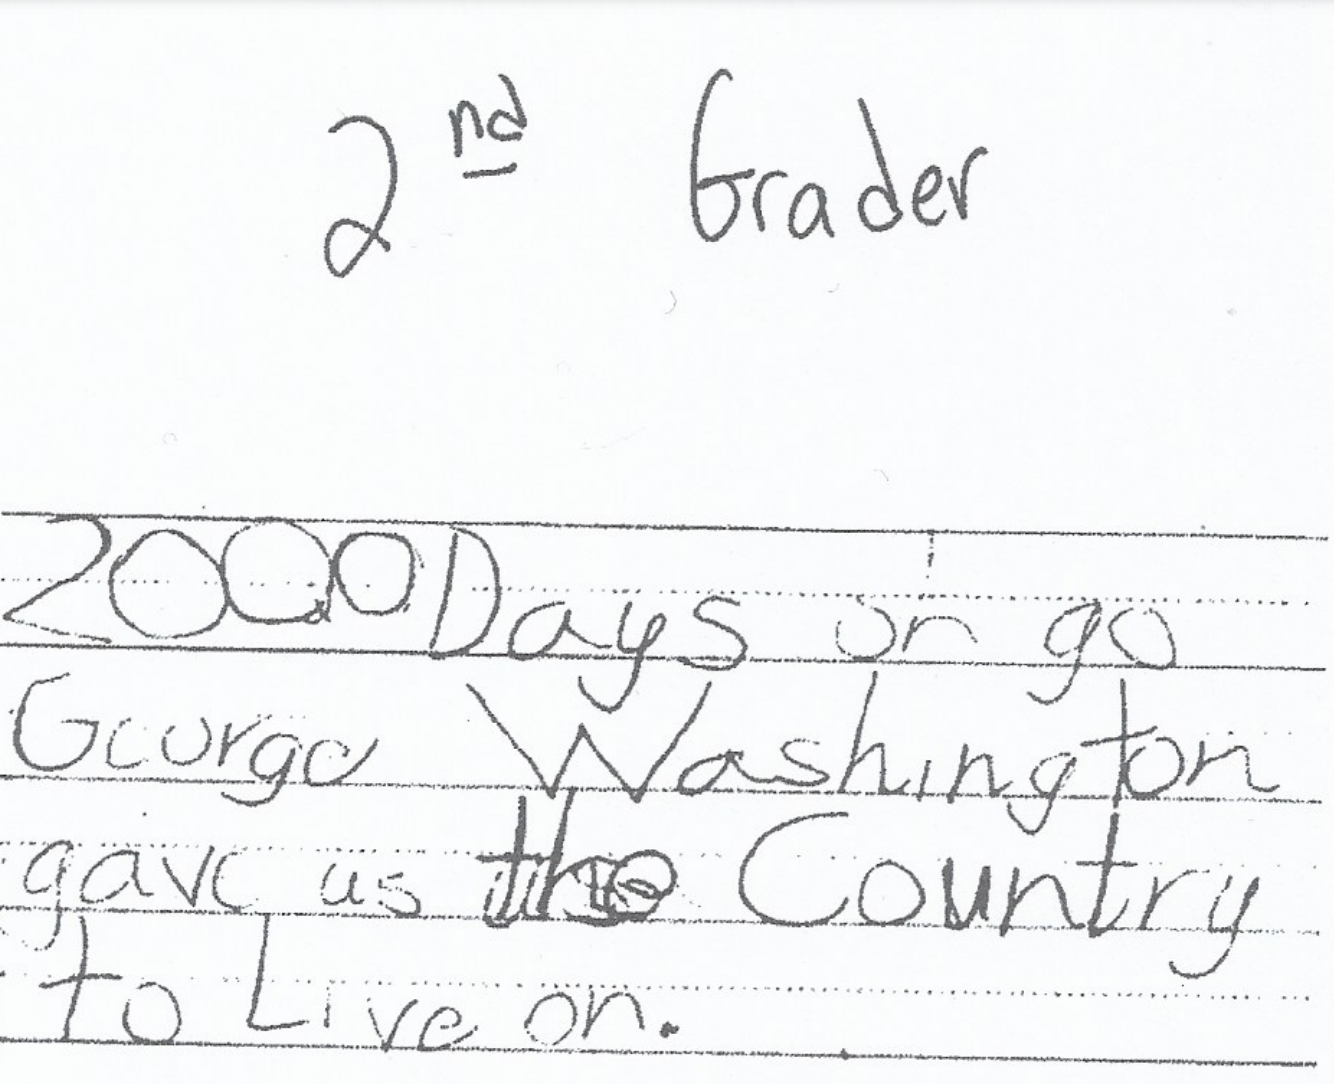 2nd Grader
2000 Days on go
George Washington
gave us the Country
to Live on.